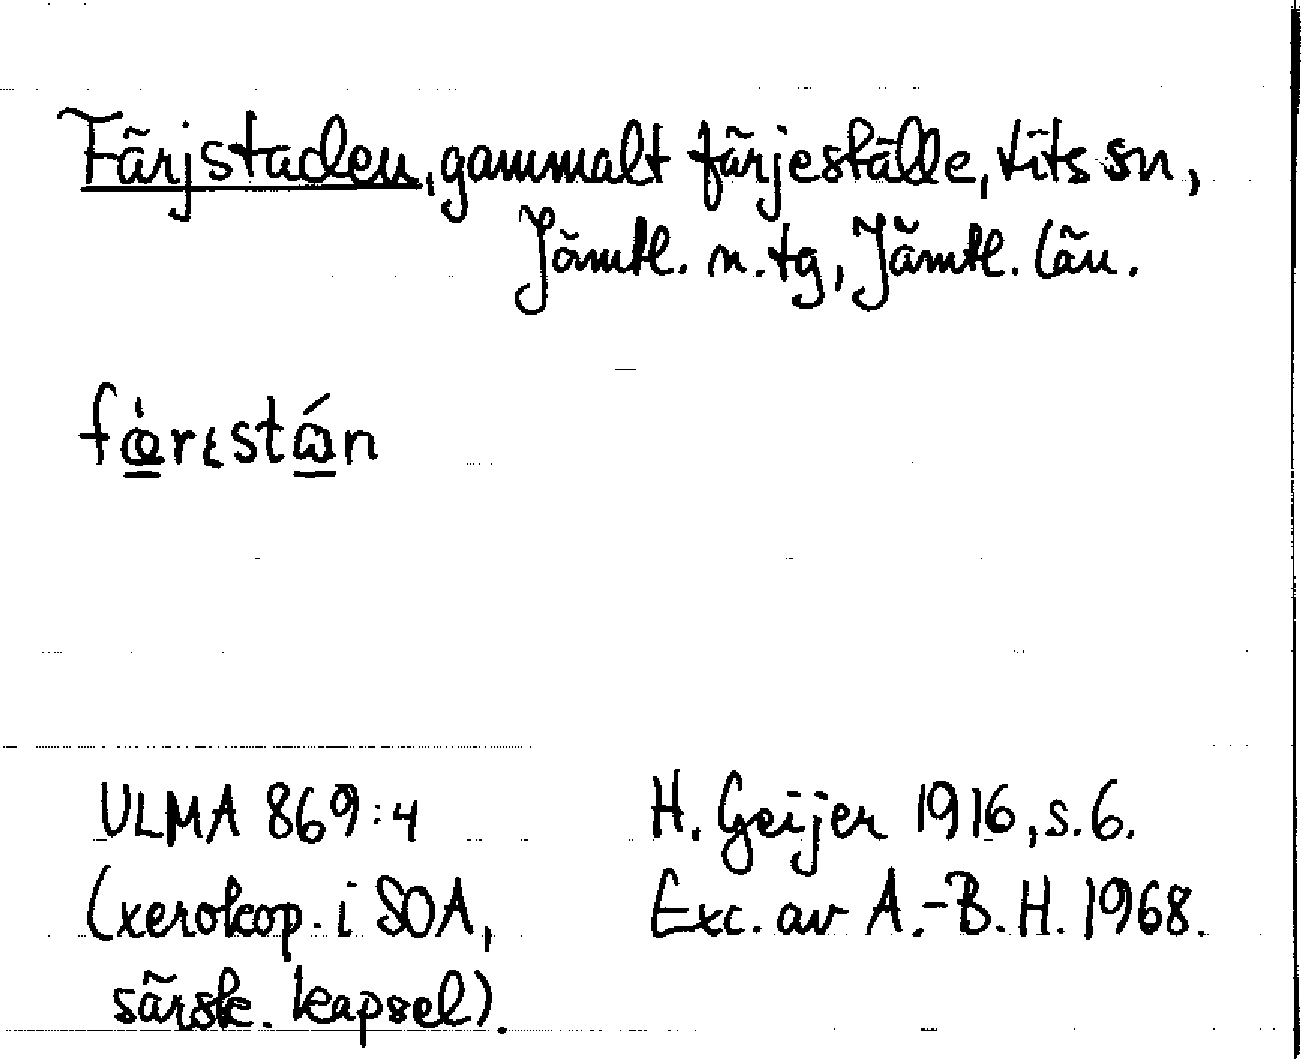 Färjstaden, gammalt färjeställe, Lits sn,
Jämtl. n. tg, Jämtl. län.
ULMA 869:4
(xerokop. i SOA,
särsk. kapsel).
H. Geijer 1916, s. 6.
Exc. av A.-B. H. 1968.